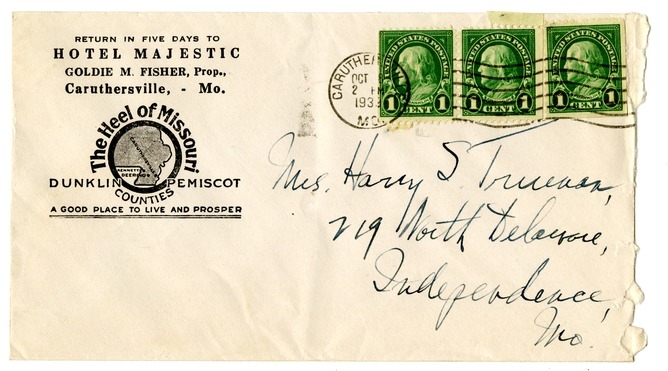 RETURN IN FIVE DAYS TO
HOTEL MAJESTIC
GOLDIE M. FISHER, Prop.,
Caruthersville, - Mo.
The Heel of Missouri
KENNETT
DUNKLIN PEMISCOT
COUNTIES
A GOOD PLACE TO LIVE AND PROSPER
CARUTHER
OCT
2 PM
193
MO.
UNITED STATES POSTAGE
1 CENT 1
UNITED STATES POSTAGE
1 CENT 1
UNITED STATES POSTAGE
1 CENT 1
Mrs. Harry S. Truman,
219 North Delaware,
Independence,
Mo.